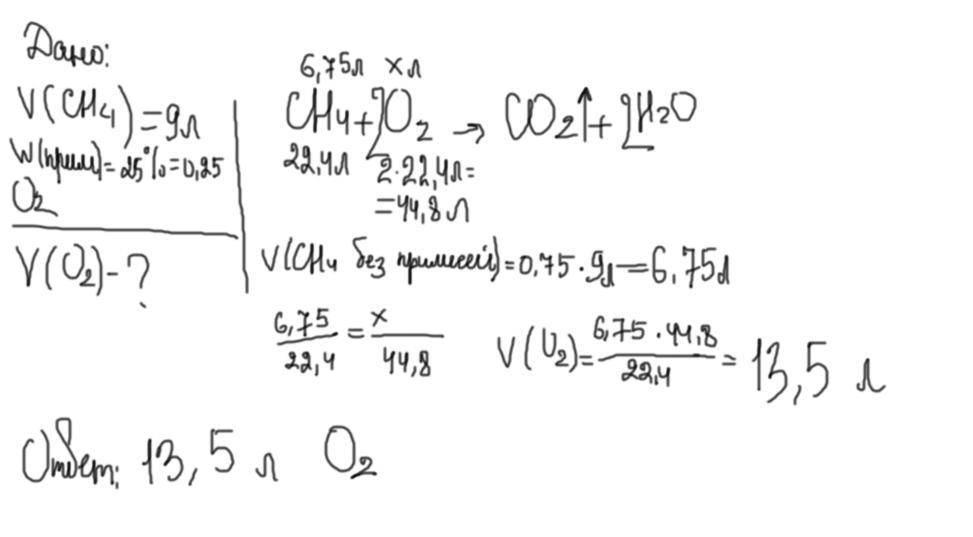 Дано:
V(CH4)=9л
W(прим)=25%=0,25
O2
V(O2)-?
6,75л x л
CH4+2O2 → CO2↑+2H2O
22,4л 2·22,4л=
=44,8л
V(CH4 без примесей)=0,75·9л=6,75л
6,75/22,4 = x/44,8
V(O2)=6,75·44,8/22,4=13,5 л
Ответ: 13,5 л O2